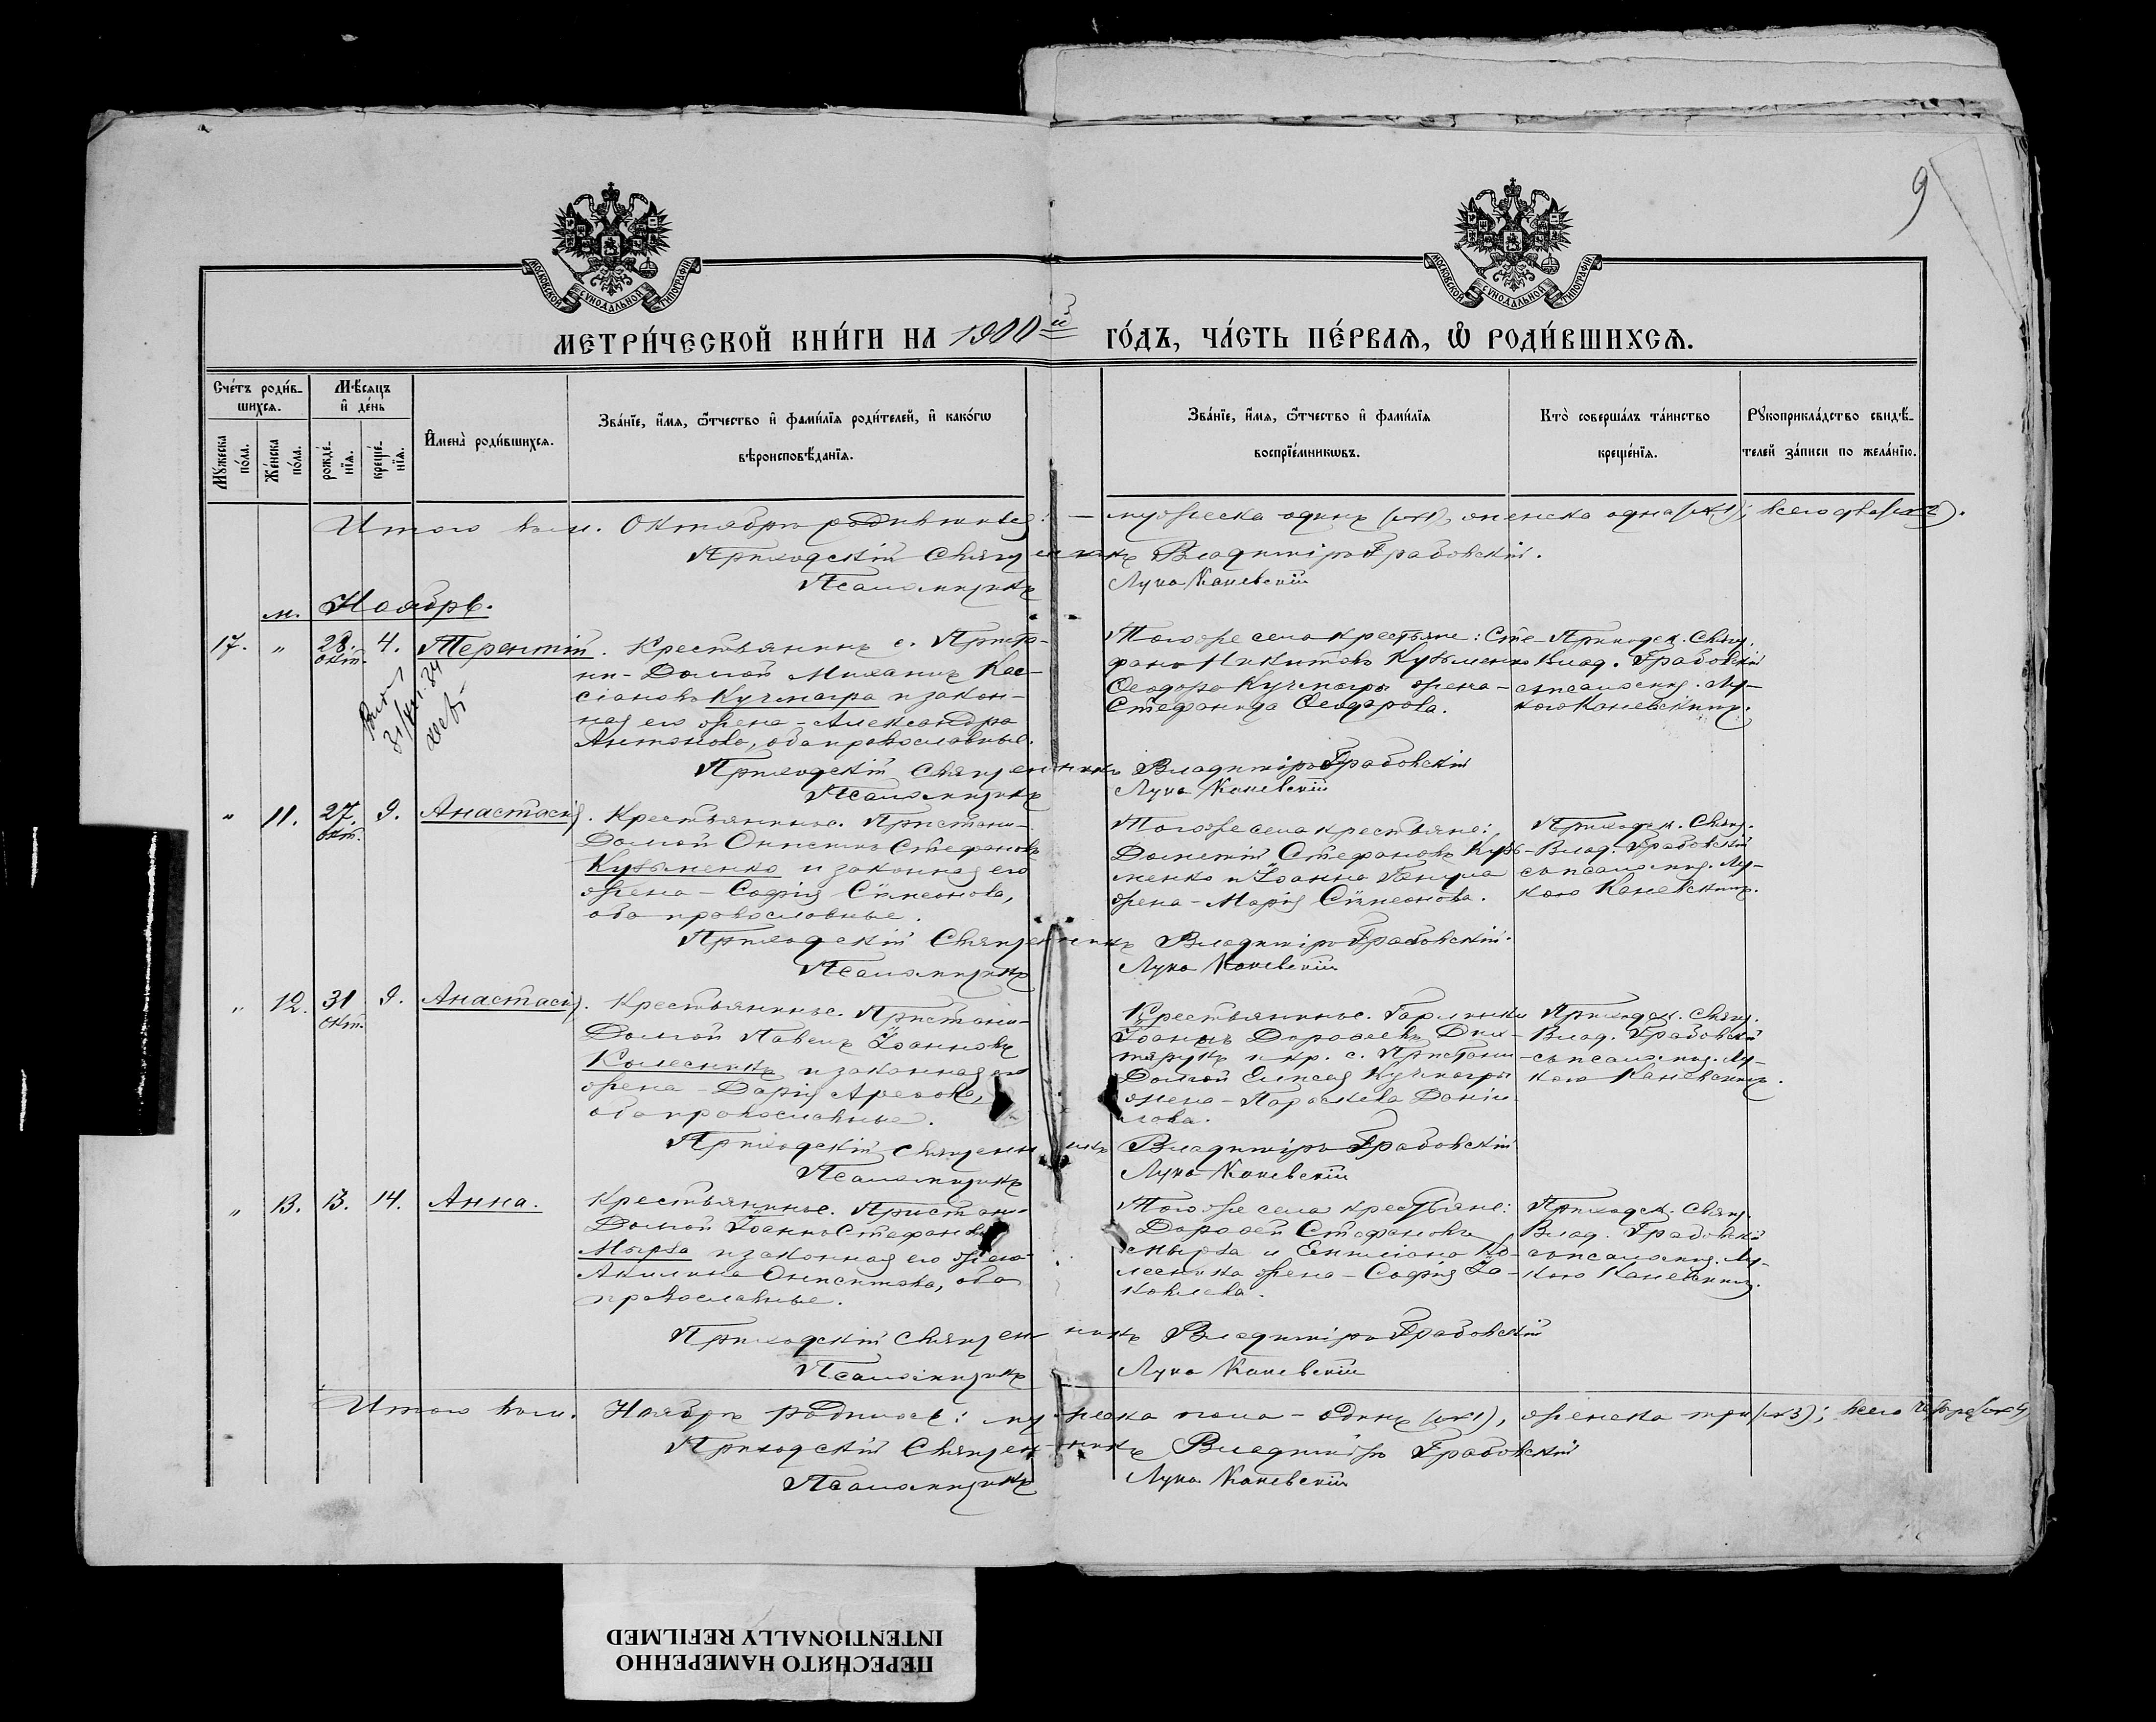 9
МОСКОВСКОЙ СѴНОДАЛЬНОЙ ТИПОГРАФІИ
МОСКОВСКОЙ СѴНОДАЛЬНОЙ ТИПОГРАФІИ
МЕТРИ́ЧЕСКОЙ КНИ́ГИ НА 1900й ГО́ДЪ, ЧА́СТЬ ПЕ́РВАѦ, Ѡ҆ РОДИ́ВШИХСѦ.
Сче́тъ роди́в-
шихсѧ.
Мꙋжеска по́ла.
Же́нска по́ла.
Мѣ́сѧцъ
и҆ де́нь
рожде́-
нїѧ.
креще́-
нїѧ.
И҆мена̀ роди́вшихсѧ.
Зва́нїе, и҆́мѧ, ѻ҆́тчество и҆ фами́лїѧ роди́телей, и҆ како́гѡ
вѣроисповѣ́данїѧ.
Зва́нїе, и҆́мѧ, ѻ҆́тчество и҆ фами́лїѧ
воспрїе́мникѡвъ.
Кто̀ соверша́лъ та́инство
креще́нїѧ.
Рꙋкоприкла́дство свидѣ́-
телей за́писи по жела́нїю.
Итого въ м. Октябрѣ родившихся: – мужеска одинъ (№1), женска одна (№1); всего два (№2).
Приходскій Священникъ Владиміръ Грабовскій.
Псаломщикъ Лука Каневскій
м. Ноябрь.
17. " 28. окт. 4. Терентій.
Крестьянинъ с. Приста-
ни-Долгой Михаилъ Кас-
сіановъ Кучмагра и закон-
ная его жена – Александра
Антонова, оба православные.
Того же села крестьяне: Сте-
фанъ Никитовъ Кузьменко
Ѳеодора Кучмагры жена –
Стефанида Ѳеодорова.
Приходск. Свящ.
Влад. Грабовскій
съ псаломщ. Лу-
кою Каневскимъ.
Приходскій Священникъ Владиміръ Грабовскій
Псаломщикъ Лука Каневскій
" 11. 27. окт. 9. Анастасія.
Крестьянинъ с. Пристани-
Долгой Онисимъ Стефановъ
Кузьменко и законная его
жена – Софія Сѵмеонова,
оба православные.
Того же села крестьяне:
Дометій Стефановъ Кузь-
менко и Іоанна
жена – Марія Сѵмеонова.
Приходск. Свящ.
Влад. Грабовскій
съ псаломщ. Лу-
кою Каневскимъ.
Приходскій Священникъ Владиміръ Грабовскій.
Псаломщикъ Лука Каневскій
" 12. 31 окт. 9. Анастасія.
Крестьянинъ с. Пристани-
Долгой Павелъ Іоанновъ
Колесникъ и законная его
жена – Дарія
оба православные.
Крестьянинъ с.
Іоаннъ Дороѳеевъ
и кр. с. Пристани
Долгой Елисея Кучмагры
жена – Параскева Даніи-
лова.
Приходск. Свящ.
Влад. Грабовскій
съ псаломщ. Лу-
кою Каневскимъ.
Приходскій Священникъ Владиміръ Грабовскій
Псаломщикъ Лука Каневскій
" 13. 13. 14. Анна.
Крестьянинъ с. Пристани-
Долгой Іоаннъ Стефановъ
Мырза и законная его жена
Акилина Онисимова, оба
православные.
Того же села крестьяне:
Дороѳей Стефановъ
Мырза и Емиліана Ко-
лесника жена – Софія Іа-
ковлева.
Приходск. Свящ.
Влад. Грабовскій
съ псаломщ. Лу-
кою Каневскимъ.
Приходскій Священникъ Владиміръ Грабовскій
Псаломщикъ Лука Каневскій
Итого въ м. Ноябрѣ родилось: мужеска пола – одинъ (№1), женска три (№3); всего четыре (№4)
Приходскій Священникъ Владиміръ Грабовскій
Псаломщикъ Лука Каневскій
ПЕРЕСНЯТО НАМЕРЕННО
INTENTIONALLY REFILMED